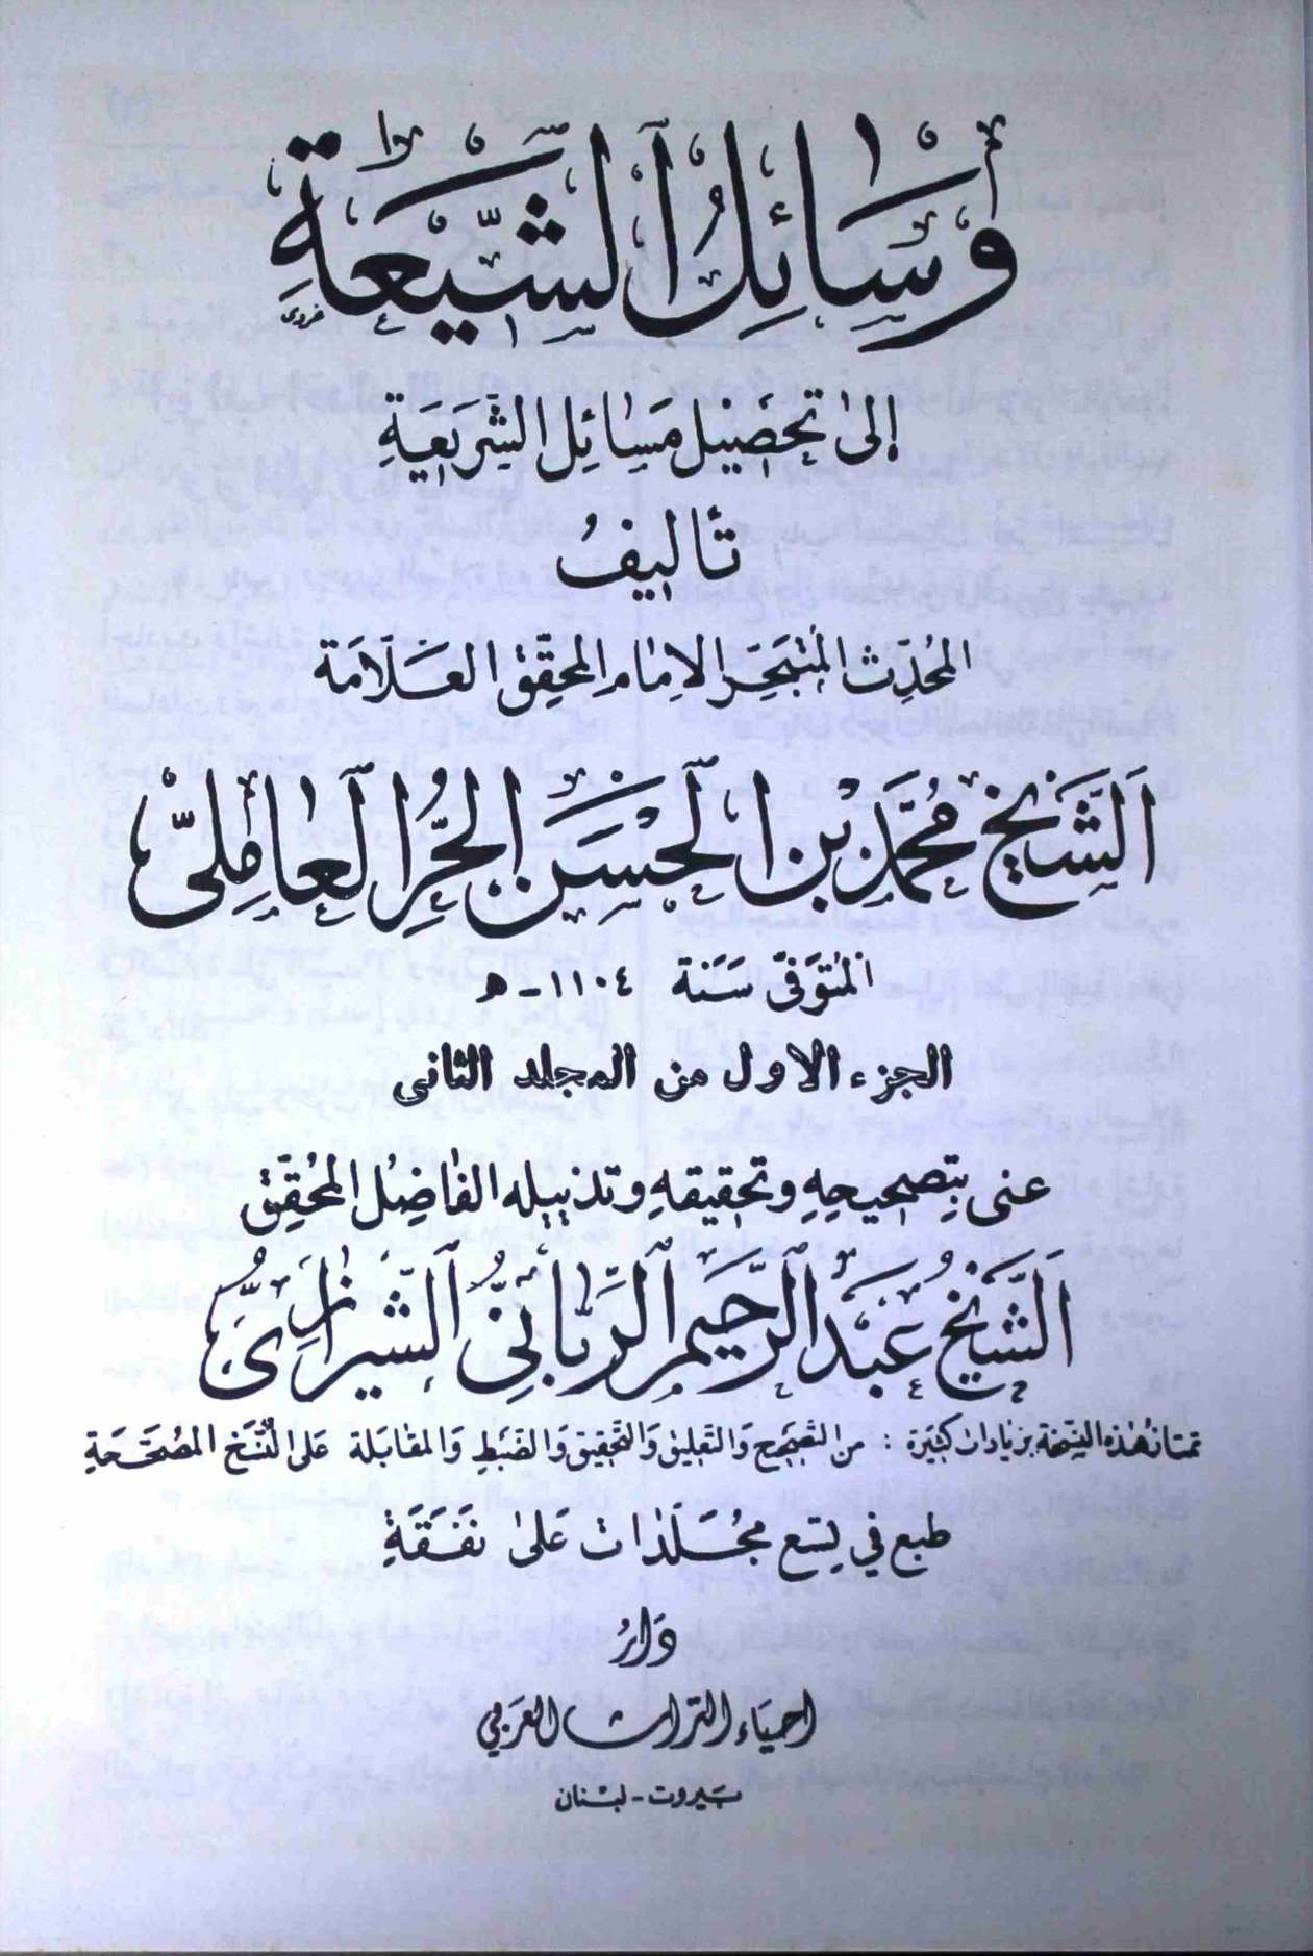 وسائل الشيعة
إلى تحصيل مسائل الشريعة
تأليف
المحدث المتبحر الامام المحقق العلامة
الشيخ محمد بن الحسن الحر العاملي
المتوفى سنة ١١٠٤ - ه
الجزء الاول من المجلد الثانى
عنى بتصحيحه وتحقيقه وتذييله الفاضل المحقق
الشيخ عبد الرحيم الرباني الشيرازى
تمتاز هذه النسخة بزيادات كثيرة : من التصحيح والتعليق والتحقيق والضبط والمقابلة على النسخ المصححة
طبع في تسع مجلدات على نفقة
دار
احياء التراث العربي
بيروت - لبنان